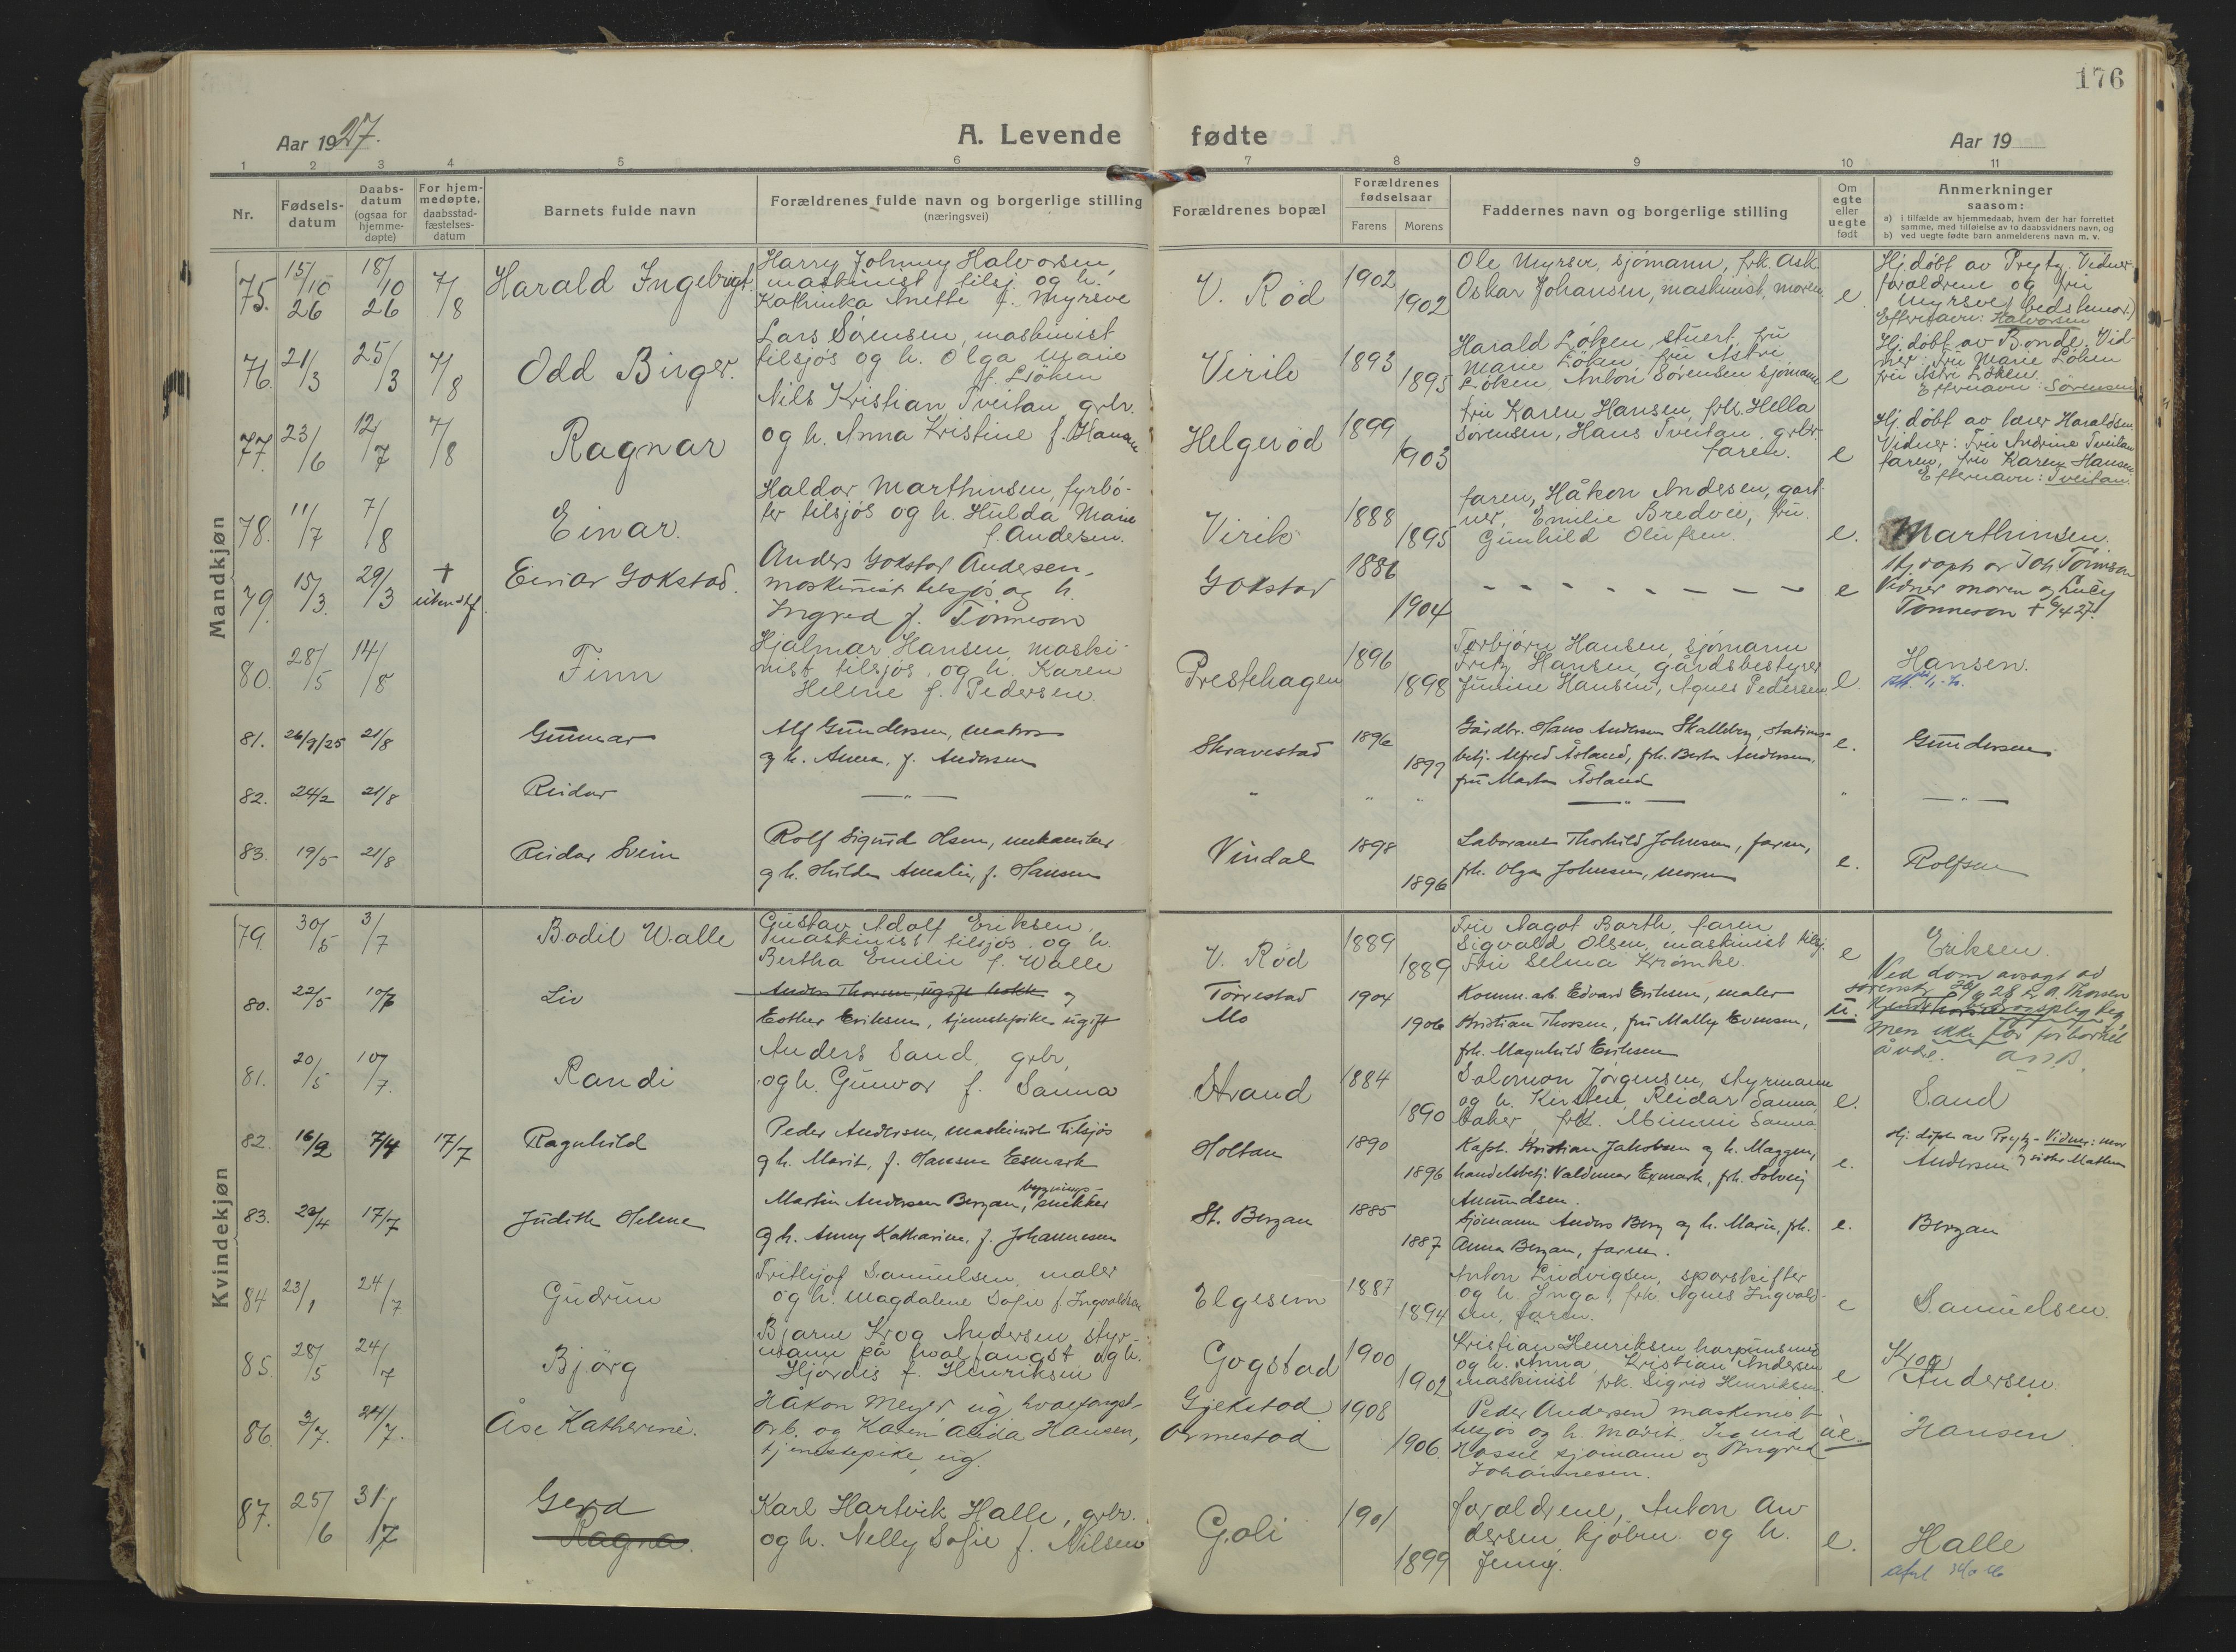 176
Aar 1927.
A. Levende fødte
Aar 19
1 2 3 4 5 6 7 8 9 10 11
Nr.
Fødsels-
datum
Daabs-
datum
(ogsaa for
hjemme-
døpte)
For hjem-
medøpte,
daabsstad-
fæstelses-
datum
Barnets fulde navn
Forældrenes fulde navn og borgerlige stilling
(næringsvei)
Forældrenes bopæl
Forældrenes
fødselsaar
Farens Morens
Faddernes navn og borgerlige stilling
Om
egte
eller
uegte
født
Anmerkninger
saasom:
a) i tilfælde av hjemmedaab, hvem der har forrettet
samme, med tilføielse av to daabsvidners navn, og
b) ved uegte fødte barn anmelderens navn m. v.
Mandkjøn
75. 15/10 26 18/10 26 7/8
Harald Ingebrigt.
Harry Johnny Halvorsen,
maskinist tilsj. og h.
Kathinka Anette f. Myrsve
V. Rød
1902
1902
Ole Myrsve, sjømann, frk. Ask
Oskar Johansen, maskinist, moren
e.
Hj. døbt av Prytz. Vidner
foraldrene og fru
Myrsve (bedstemor.)
Efternavn: Halvorsen
76. 21/3 25/3 7/8
Odd Birger.
Lars Sörensen, maskinist
tilsjös og h. Olga Marie
f. Löken
Virik
1893
1895
Harald Löken, stuert, fru
Marie Löken, fru Astri
Löken, Anton Sörensen sjömann
e
Hj. döbt av Bonde. Vid-
ner: Fru Marie Löken
fru Astri Löken.
Efternavn: Sörensen
77. 23/6 12/7 7/8
Ragnar
Nils Kristian Tveitan grbr.
og h. Anna Kristine f. Hansen
Helgeröd
1899
1903
fru Karen Hansen, frk. Hella
Sörensen, Hans Tveitan, grbr.
faren.
e
Hj. döbt av lærer Haraldsen
Vidner: Fru Andrine Tveitan
faren, fru Karen Hansen
Efternavn: Tveitan.
78. 11/7 7/8
Einar.
Haldor Marthinsen, fyrbö-
ter tilsjös og h. Hulda Marie
f. Andersen.
Virik
1888
1895
faren, Håkon Andersen, gart-
ner, Emilie Bredvei, fru
Gunhild Olufsen.
e.
Marthinsen.
79. 15/3. 29/3 +
Einar Gokstad.
Anders Gokstad Andersen,
maskinist tilsjøs og h.
Ingrid f. Tönneson
Gokstad
1886
1904
e
Hj. döpt av Joh Tönneson
Vidner moren og Lucy
Tönneson + 9/4 27.
80. 28/5 14/8
Finn
Hjalmar Hansen, maski-
nist tilsjös, og h. Karen
Helene f. Pedersen.
Prestehagen
1896
1898
Torbjörn Hansen, sjömann
Fritz Hansen, gårdsbestyrer
Hansen, Agnes Pedersen
e.
Hansen.
81. 26/9/25 21/8
Gunnar
Alf Gundersen, matros
og h. Anna, f. Andersen
Skravestad
1896
1897
Gårdbr. Hans Andersen Skalleberg, stations-
betj. Alfred Åsland, frk. Berta Andersen,
fru Marta Åsland
e.
Gundersen
82. 24/2 21/8
Reidar
— " —
83. 19/5 21/8
Reidar Svein
Rolf Sigurd Olsen, mekaniker
og h. Hilda Amalie, f. Hansen
Vindal
1898
1896
Laborant Thorhild Johnsen, faren,
frk. Olga Johnsen, moren
e.
Rolfsen
Kvindekjøn
79. 30/5 3/7
Bodil Walle
Gustav Adolf Eriksen,
maskinist tilsjös, og h.
Bertha Emilie f. Walle
V. Röd
1889
1889
Fru Nagot Barth, faren
Sigvald Olsen, maskinist tilsj.
Fru Selma Krömke.
e
Eriksen.
80. 22/5 10/7
Liv
Anders Thorsen, ugift og
Esther Eriksen, tjenestepike ugift
Törrestad
Mo
1904
1906
Komm. arb. Edvard Eriksen, maler
Kristian Thorsen, fru Mally Evensen,
frk. Magnhild Eriksen
u.
Ved dom avsagt av
A. Thorsen
men ikke far
81. 20/5 10/7.
Randi
Anders Sand, grbr.
og h. Gunvor f. Sanna
Strand
1884
1890
Salomon Jørgensen, styrmann
og h. Kirsten, Reidar Sanna,
baker, frk. Mimmi Sanna
e.
Sand
82. 16/2 7/4 17/7
Ragnhild
Peder Andersen, maskinist tilsjøs
og h. Marit, f. Hansen Esmark
Holtan
1890
1896
Kapt. Kristian Jakobsen og h. Maggen,
handelsbetj. Valdemar Exmark, frk. Solveig
Amundsen.
e.
Hj. døpt av Prytz - Vidner: mor
Andersen og søster Mathea
83. 23/4 17/7
Judith Helene
Martin Andersen Bergan, bygnings-
snekker
og h. Anny Katharina, f. Johannesen
St. Bergan
1885
1887
Sjömann Anders Berg og h. Marie, frk.
Anna Bergan, faren.
e.
Bergan
84 23/1 24/7
Gudrun
Frithjof Samuelsen, maler
og h. Magdalene Sofie f. Ingvaldsen
Elgesem
1887
1894
Anton Ludvigsen, sporskifter
og h. Inga, frk. Agnes Ingvald-
sen, faren.
e
Samuelsen.
85. 28/5 24/7
Bjørg
Bjarne Krog Andersen, styr-
mann på hvalfangst og h.
Hjördis f. Henriksen
Gogstad
1900
1902
Kristian Henriksen
og h. Anna, Kristian Andersen
maskinist frk. Sigrid Henriksen.
e
Krog
Andersen.
86. 3/7. 24/7.
Åse Katherine.
Håkon Meyer, ug. hvalfangst-
arb. og Karen Alida Hansen,
tjenestepike, ug.
Gjekstad
Ormestad
1908
1906.
Peder Andersen maskinist
tilsjøs og h. Marit. Sigurd
Hassel sjømann og Ingrid
Johannesen.
ue.
Hansen.
87. 25/6 31/7
Gerd
Ragna.
Karl Hartvik Halle, grbr.
og h. Nelly Sofie f. Nilsen
Goli
1901
1899
foraldrene, Anton An-
dersen, kjöbm. og h.
Jenny.
e.
Halle